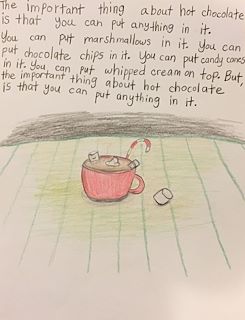 The important thing about hot chocolate
is that you can put anything in it.
You can put marshmallows in it. You can
put chocolate chips in it. You can put candy canes
in it. You can put whipped cream on top. But,
the important thing about hot chocolate
is that you can put anything in it.